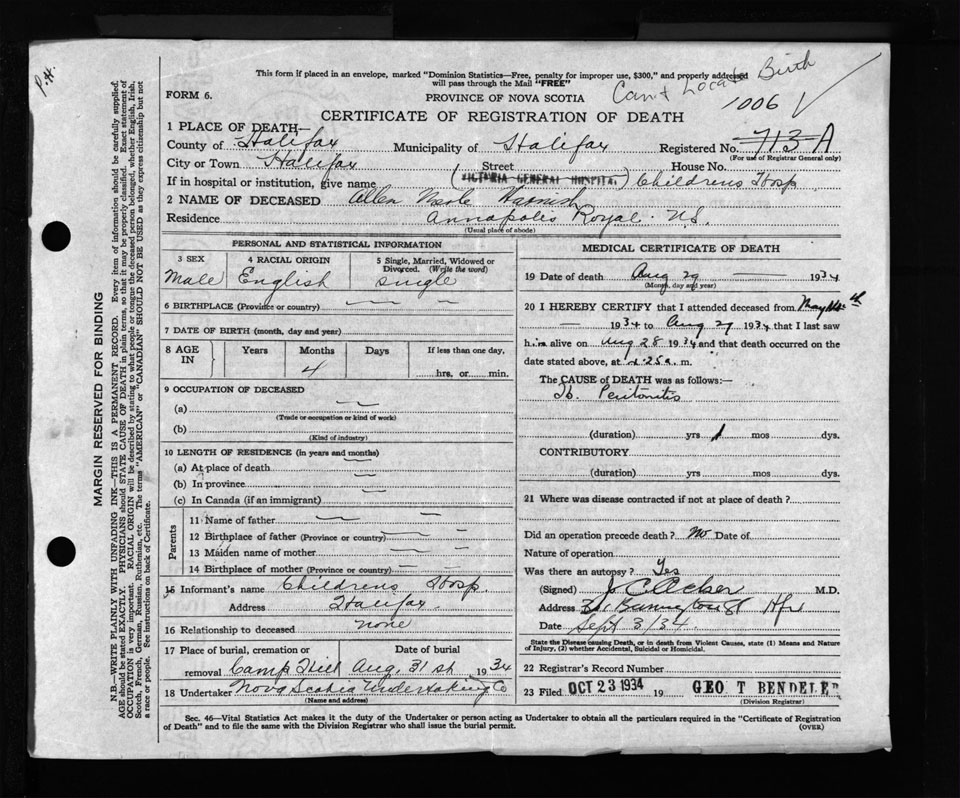 P.H.
This form if placed in an envelope, marked "Dominion Statistics—Free, penalty for improper use, $300," and properly addressed
will pass through the Mail "FREE"
Can't Locate Birth
FORM 6.
PROVINCE OF NOVA SCOTIA
1006
CERTIFICATE OF REGISTRATION OF DEATH
1 PLACE OF DEATH—
County of Halifax Municipality of Halifax Registered No. 713-A
(For use of Registrar General only)
City or Town Halifax Street House No.
If in hospital or institution, give name (VICTORIA GENERAL HOSPITAL) Childrens Hosp
2 NAME OF DECEASED Allen
Residence Annapolis Royal N.S.
(Usual place of abode)
PERSONAL AND STATISTICAL INFORMATION
3 SEX
Male
4 RACIAL ORIGIN
English
5 Single, Married, Widowed or
Divorced. (Write the word)
Single
6 BIRTHPLACE (Province or country)
7 DATE OF BIRTH (month, day and year)
8 AGE IN
Years Months Days If less than one day,
4
hrs. or min.
9 OCCUPATION OF DECEASED
(a)
(Trade or occupation or kind of work)
(b)
(Kind of industry)
10 LENGTH OF RESIDENCE (in years and months)
(a) At place of death
(b) In province
(c) In Canada (if an immigrant)
Parents
11 Name of father
12 Birthplace of father (Province or country)
13 Maiden name of mother
14 Birthplace of mother (Province or country)
15 Informant's name Childrens Hosp
Address Halifax
16 Relationship to deceased none
17 Place of burial, cremation or Date of burial
removal Camp Hill Aug. 31st 1934
18 Undertaker Nova Scotia Undertaking Co
(Name and address)
MEDICAL CERTIFICATE OF DEATH
19 Date of death Aug 29 1934
(Month, day and year)
20 I HEREBY CERTIFY that I attended deceased from May
1934 to Aug 29 1934 that I last saw
him alive on Aug 28 1934 and that death occurred on the
date stated above, at 25 a. m.
The CAUSE of DEATH was as follows:—
Tb. Peritonitis
(duration) yrs 1 mos dys.
CONTRIBUTORY
(duration) yrs. mos. dys.
21 Where was disease contracted if not at place of death?
Did an operation precede death? No Date of
Nature of operation
Was there an autopsy? Yes
(Signed) J. C. Acker M.D.
Address Hfx
Date Sept 3/34
State the Disease causing Death, or in death from Violent Causes, state (1) Means and Nature
of Injury, (2) whether Accidental, Suicidal or Homicidal.
22 Registrar's Record Number
23 Filed OCT 23 1934 19 GEO T BENDELER
(Division Registrar)
Sec. 46—Vital Statistics Act makes it the duty of the Undertaker or person acting as Undertaker to obtain all the particulars required in the "Certificate of Registration
of Death" and to file the same with the Division Registrar who shall issue the burial permit.
(OVER)
MARGIN RESERVED FOR BINDING
N.B.—WRITE PLAINLY WITH UNFADING INK—THIS IS A PERMANENT RECORD. Every item of information should be carefully supplied.
AGE should be stated EXACTLY. PHYSICIANS should STATE CAUSE OF DEATH in plain terms, so that it may be properly classified. Exact statement of
OCCUPATION is very important. RACIAL ORIGIN will be described by stating to what people or tongue the deceased person belonged, whether English, Irish,
Scotch, French, German, Russian, Ruthenian, etc. The terms "AMERICAN" or "CANADIAN" SHOULD NOT BE USED as they express citizenship but not
a race or people. See instructions on back of Certificate.